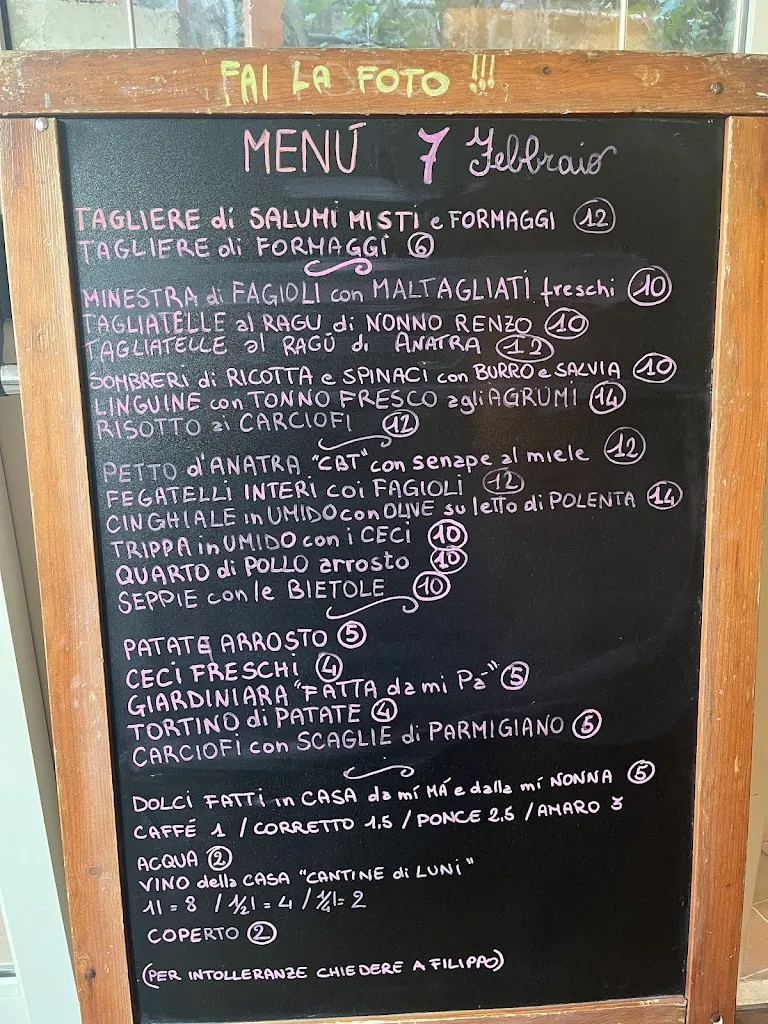 FAI LA FOTO !!!
MENÚ 7 Febbraio
TAGLIERE di SALUMI MISTI e FORMAGGI 12
TAGLIERE di FORMAGGI 6
MINESTRA di FAGIOLI con MALTAGLIATI freschi 10
TAGLIATELLE al RAGU di NONNO RENZO 10
TAGLIATELLE al RAGÚ di ANATRA 12
SOMBRERI di RICOTTA e SPINACI con BURRO e SALVIA 10
LINGUINE con TONNO FRESCO agli AGRUMI 14
RISOTTO ai CARCIOFI 12
PETTO d'ANATRA "CBT" con senape al miele 12
FEGATELLI INTERI coi FAGIOLI 12
CINGHIALE in UMIDO con OLIVE su letto di POLENTA 14
TRIPPA in UMIDO con i CECI 10
QUARTO di POLLO arrosto 10
SEPPIE con le BIETOLE 10
PATATE ARROSTO 5
CECI FRESCHI 4
GIARDINIARA "FATTA da mi Pa'" 5
TORTINO di PATATE 4
CARCIOFI con SCAGLIE di PARMIGIANO 5
DOLCI FATTI in CASA da mí MÁ e dalla mí NONNA 5
CAFFÉ 1 / CORRETTO 1.5 / PONCE 2.5 / AMARO 3
ACQUA 2
VINO della CASA "CANTINE di LUNI"
1l = 8 / 1/2l = 4 / 1/4l = 2
COPERTO 2
(PER INTOLLERANZE CHIEDERE A FILIPPO)